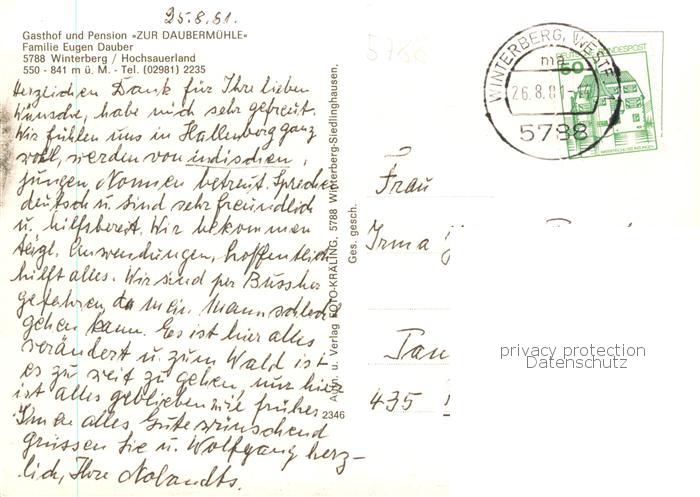 25.8.81.
Gasthof und Pension »ZUR DAUBERMÜHLE«
Familie Eugen Dauber
5788 Winterberg / Hochsauerland
550 - 841 m ü. M. - Tel. (02981) 2235
Herzlichen Dank für Ihre lieben
Wünsche, habe mich sehr gefreut.
Wir fühlen uns in Hallenberg ganz
wohl, werden von indischen,
jungen Nonnen betreut. Sprechen
deutsch u. sind sehr freundlich
u. hilfsbereit. Wir bekommen
tägl. Anwendungen, hoffentlich
hilft alles. Wir sind per
gefahren da mein Mann schlecht
gehen kann. Es ist hier alles
verändert u. zum Wald ist
es zu weit zu gehen, nur hier
ist alles geblieben wie früher
Ihnen alles Gute wünschend
grüssen Sie u. Wolfgang herz-
lich, Ihre Nolandts.
Aufn. u. Verlag FOTO-KRÄLING, 5788 Winterberg-Siedlinghausen,
Ges. gesch.
2346
5788
WINTERBERG, WESTF
ma
26.8.81-17
5788
DEUTSCHE BUNDESPOST
60
WASSERSCHLOSS INZLINGEN
Frau
Irma
435
privacy protection
Datenschutz